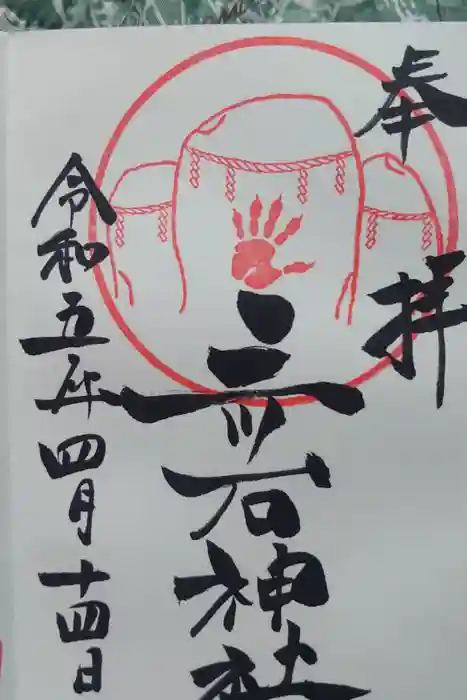 奉拝
三ツ石神社
令和五年四月十四日